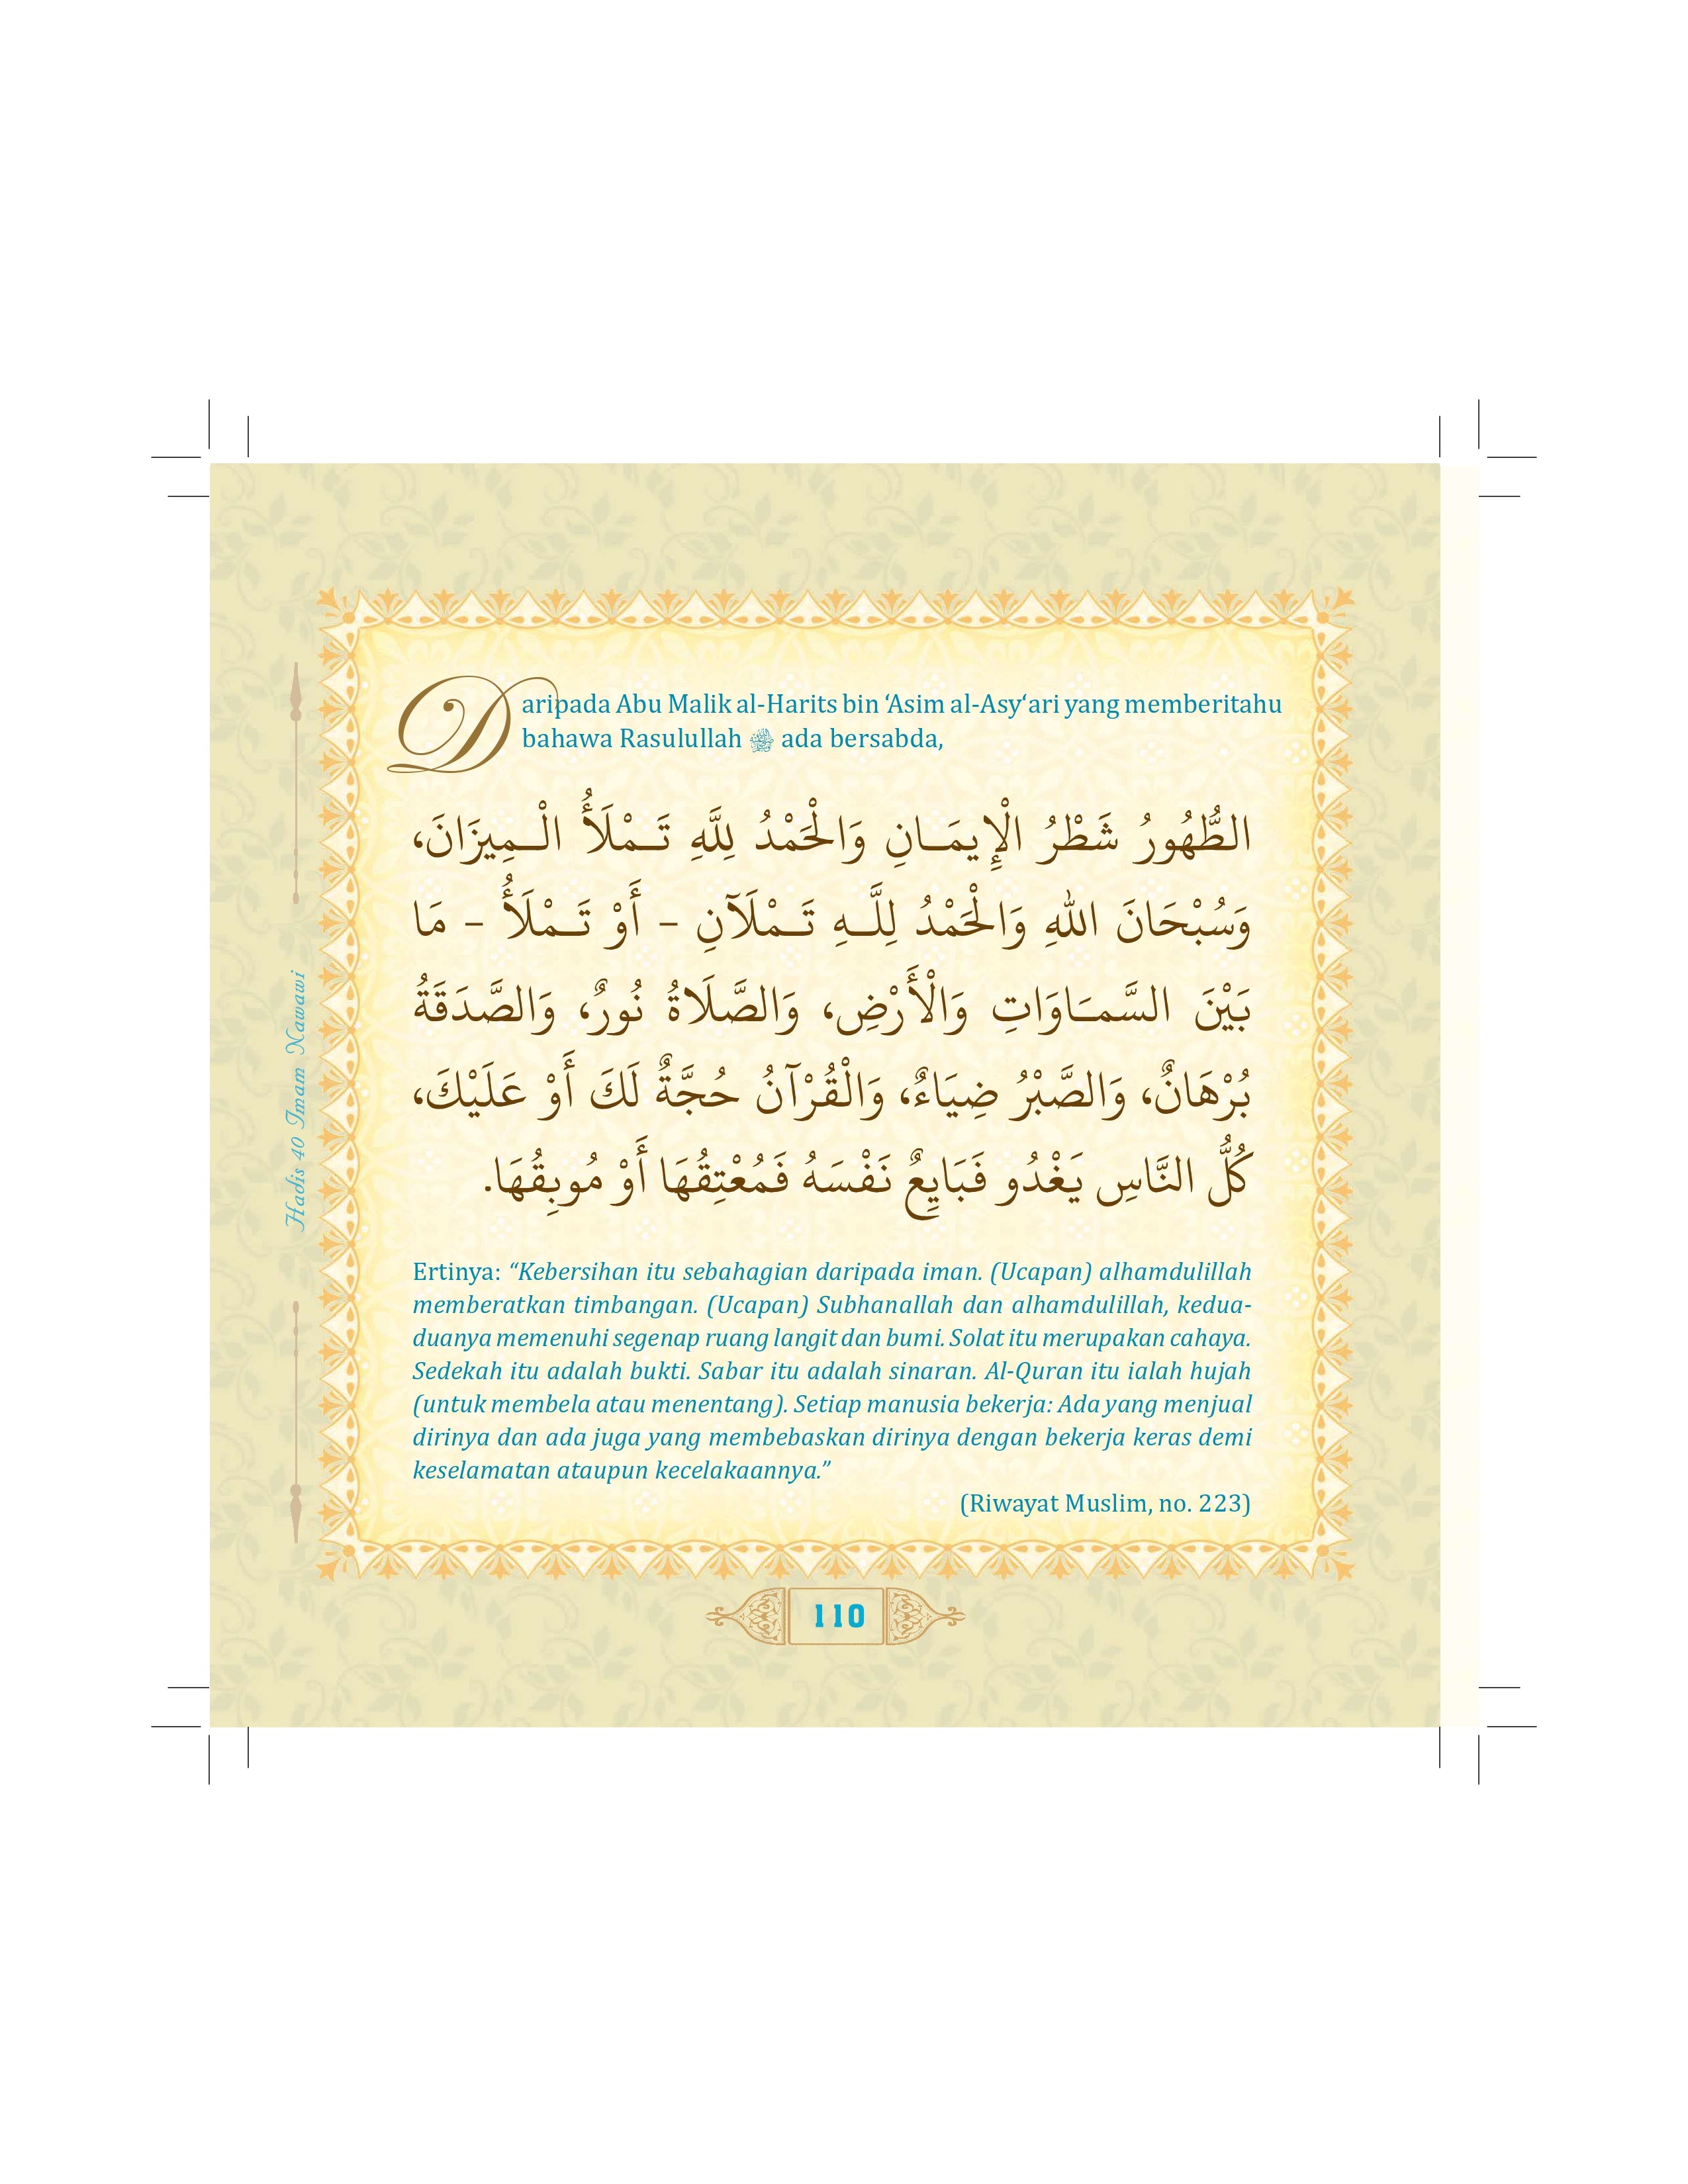 Daripada Abu Malik al-Harits bin ‘Asim al-Asy‘ari yang memberitahu
bahawa Rasulullah ﷺ ada bersabda,
الطُّهُورُ شَطْرُ الْإِيمَـانِ وَالْحَمْدُ لِلَّهِ تَـمْلَأُ الْـمِيزَانَ،
وَسُبْحَانَ اللهِ وَالْحَمْدُ لِلَّـهِ تَـمْلَآنِ – أَوْ تَـمْلَأُ – مَا
بَيْنَ السَّمَـاوَاتِ وَالْأَرْضِ، وَالصَّلَاةُ نُورٌ، وَالصَّدَقَةُ
بُرْهَانٌ، وَالصَّبْرُ ضِيَاءٌ، وَالْقُرْآنُ حُجَّةٌ لَكَ أَوْ عَلَيْكَ،
كُلُّ النَّاسِ يَغْدُو فَبَايِعٌ نَفْسَهُ فَمُعْتِقُهَا أَوْ مُوبِقُهَا.
Ertinya: “Kebersihan itu sebahagian daripada iman. (Ucapan) alhamdulillah
memberatkan timbangan. (Ucapan) Subhanallah dan alhamdulillah, kedua-
duanya memenuhi segenap ruang langit dan bumi. Solat itu merupakan cahaya.
Sedekah itu adalah bukti. Sabar itu adalah sinaran. Al-Quran itu ialah hujah
(untuk membela atau menentang). Setiap manusia bekerja: Ada yang menjual
dirinya dan ada juga yang membebaskan dirinya dengan bekerja keras demi
keselamatan ataupun kecelakaannya.”
(Riwayat Muslim, no. 223)
Hadis 40 Imam Nawawi
110